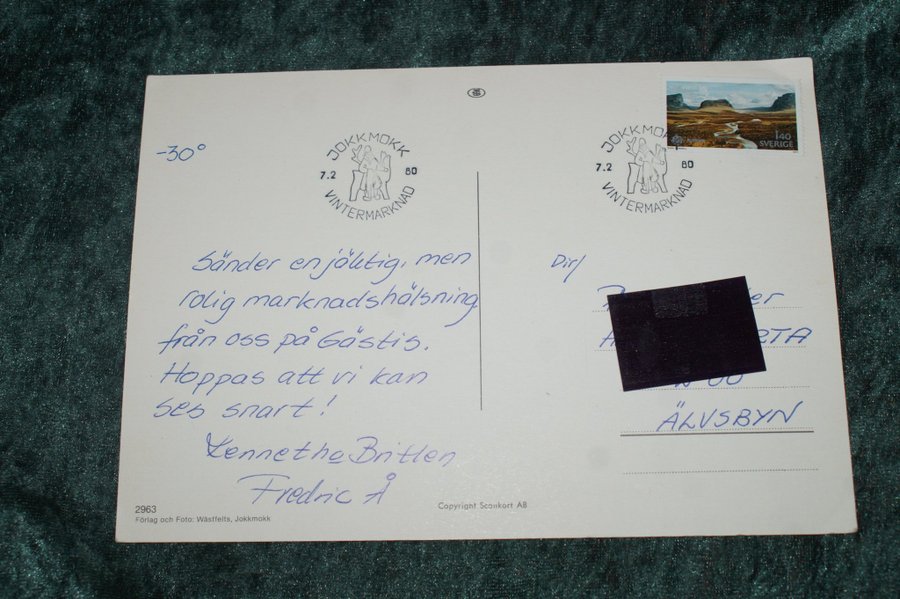 -30°
JOKKMOKK
7.2 80
VINTERMARKNAD
JOKKMOKK
7.2 80
VINTERMARKNAD
1.40
SVERIGE
Sänder en jäktig, men
rolig marknadshälsning
från oss på Gästis.
Hoppas att vi kan
ses snart!
Kenneth o Britten
Fredric Å
Dir/
ÄLVSBYN
2963
Förlag och Foto: Wästfelts, Jokkmokk
Copyright Scankort AB